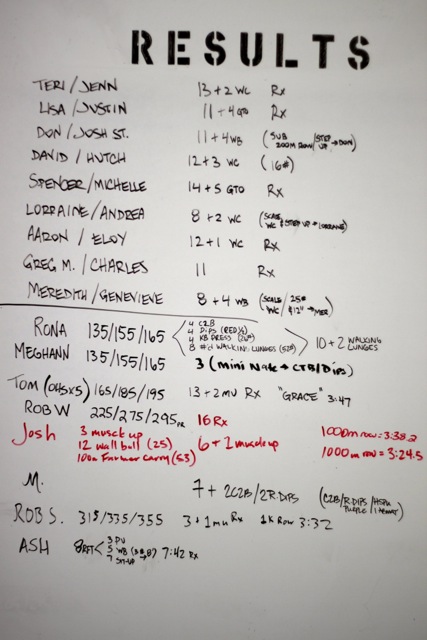 RESULTS
TERI/JENN 13+2 WC Rx
LISA/JUSTIN 11+4 GTO Rx
DON/JOSH ST. 11+4 WB (SUB 200M ROW/STEP UP → DON)
DAVID/HUTCH 12+3 WC (16#)
SPENCER/MICHELLE 14+5 GTO Rx
LORRAINE/ANDREA 8+2 WC (SCALE WC & STEP UP → LORRAINE)
AARON/ELOY 12+1 WC Rx
GREG M./CHARLES 11 Rx
MEREDITH/GENEVIEVE 8+4 WB (SCALE/25# WC/ 12" → MER)
RONA 135/155/165
4 C2B
4 DIPS (RED)
4 KB PRESS
8 WALKING LUNGES
10+2 WALKING LUNGES
MEGHANN 135/155/165 3 (mini Nate → CTB/Dips)
TOM (OHSX5) 165/185/195 13+2MU Rx "GRACE" 3:47
ROB W 225/275/295 PR 16 Rx
Josh 3 muscle up 6+2 muscle up 1000m row = 3:38.2
12 wall ball (25) 1000m row = 3:24.5
100m Farmer carry (53)
M. 7+2C2B/2R.DIPS (C2B/R.DIPS/HSPU PURPLE/1 ABMAT)
ROB S. 315/335/355 3+1mu Rx 1K Row 3:32
ASH 8RFT 7:42 Rx
3 PU
5 WB
7 SIT-UP